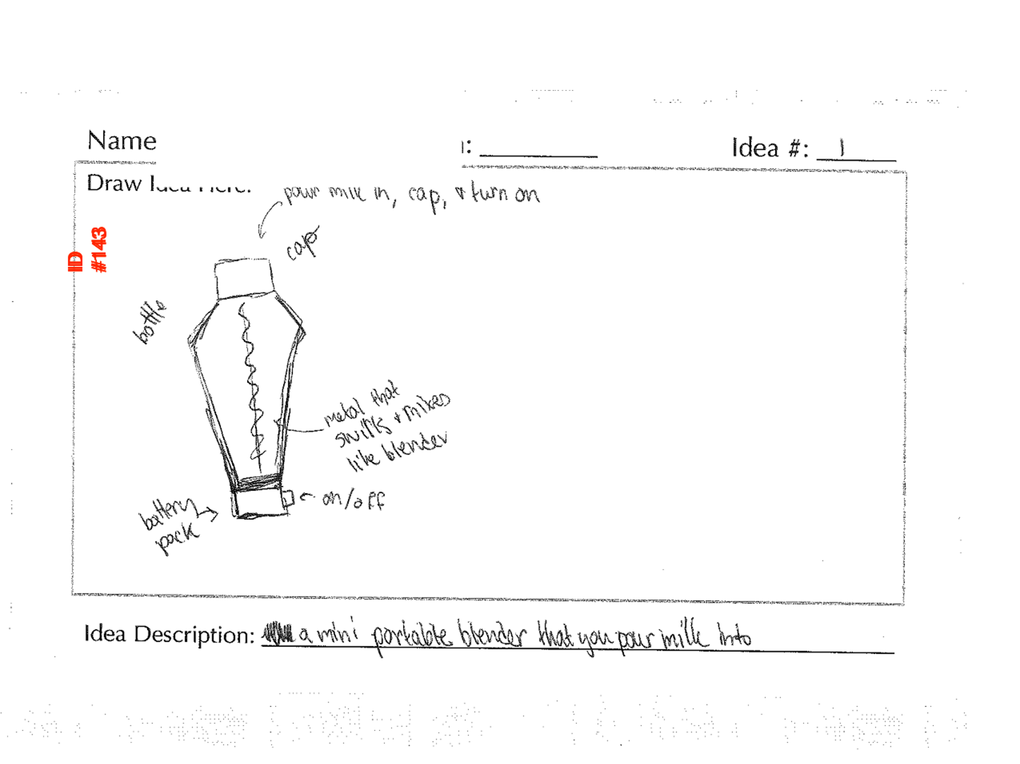 Name
: Idea #: 1
Draw Idea Here:
pour milk in, cap, & turn on
ID
#143
cap
bottle
metal that
swirls & mixes
like blender
on/off
battery
pack
Idea Description: a mini portable blender that you pour milk into